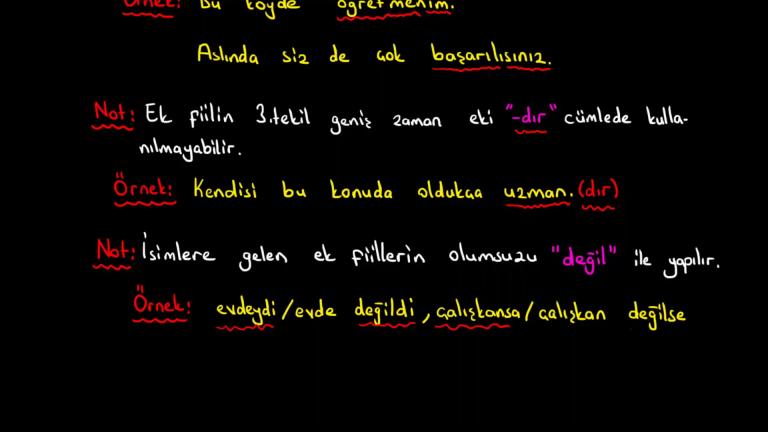 Örnek: Bu köyde öğretmenim.
Aslında siz de çok başarılısınız.
Not: Ek fiilin 3.tekil geniş zaman eki "-dır" cümlede kulla-
nılmayabilir.
Örnek: Kendisi bu konuda oldukça uzman.(dır)
Not: İsimlere gelen ek fiillerin olumsuzu "değil" ile yapılır.
Örnek: evdeydi/evde değildi, çalışkansa/çalışkan değilse